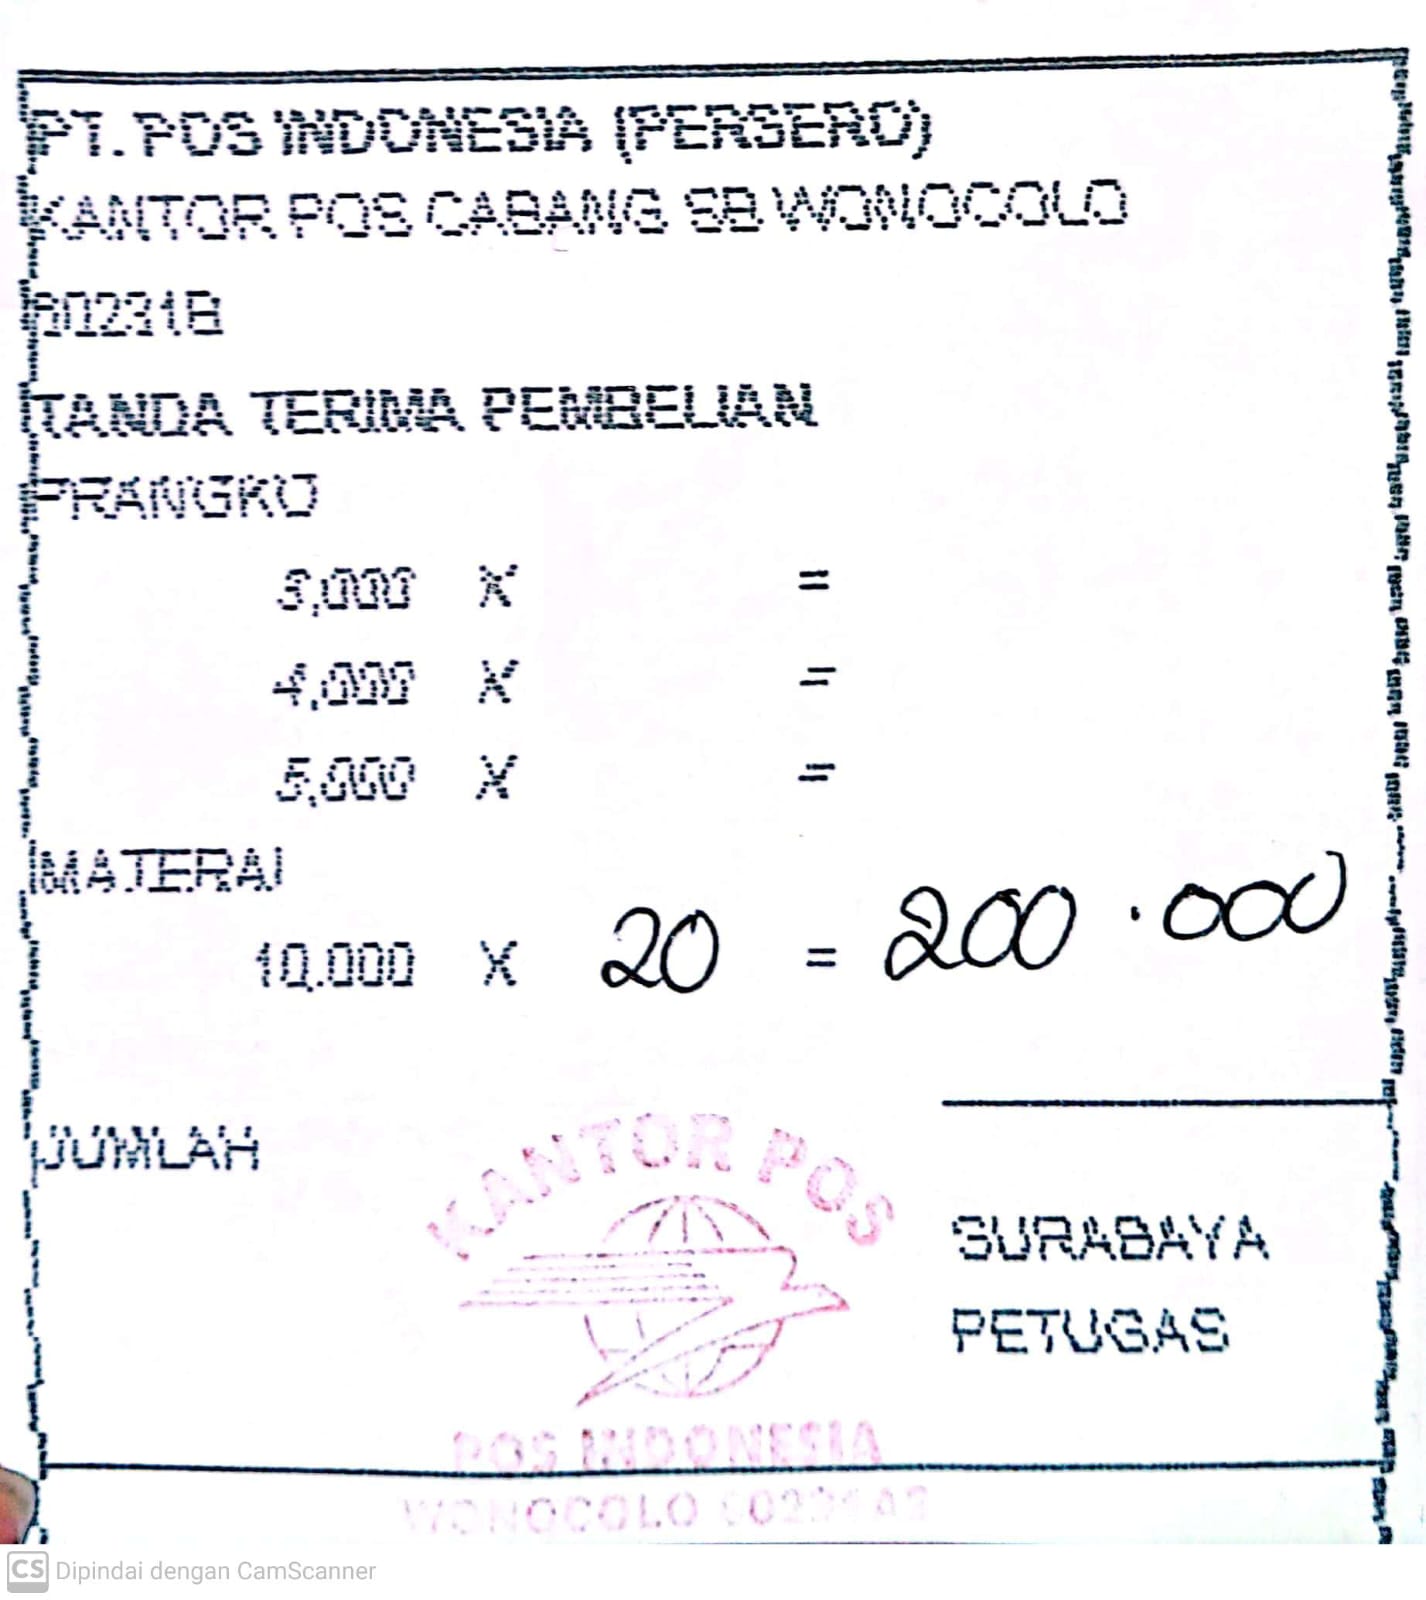 PT. POS INDONESIA (PERSERO)
KANTOR POS CABANG SB WONOCOLO
60231B
TANDA TERIMA PEMBELIAN
PRANGKO
3,000 X =
4,000 X =
5,000 X =
MATERAI
10.000 X 20 = 200.000
JUMLAH
KANTOR POS
SURABAYA
PETUGAS
POS INDONESIA
WONOCOLO
CS Dipindai dengan CamScanner